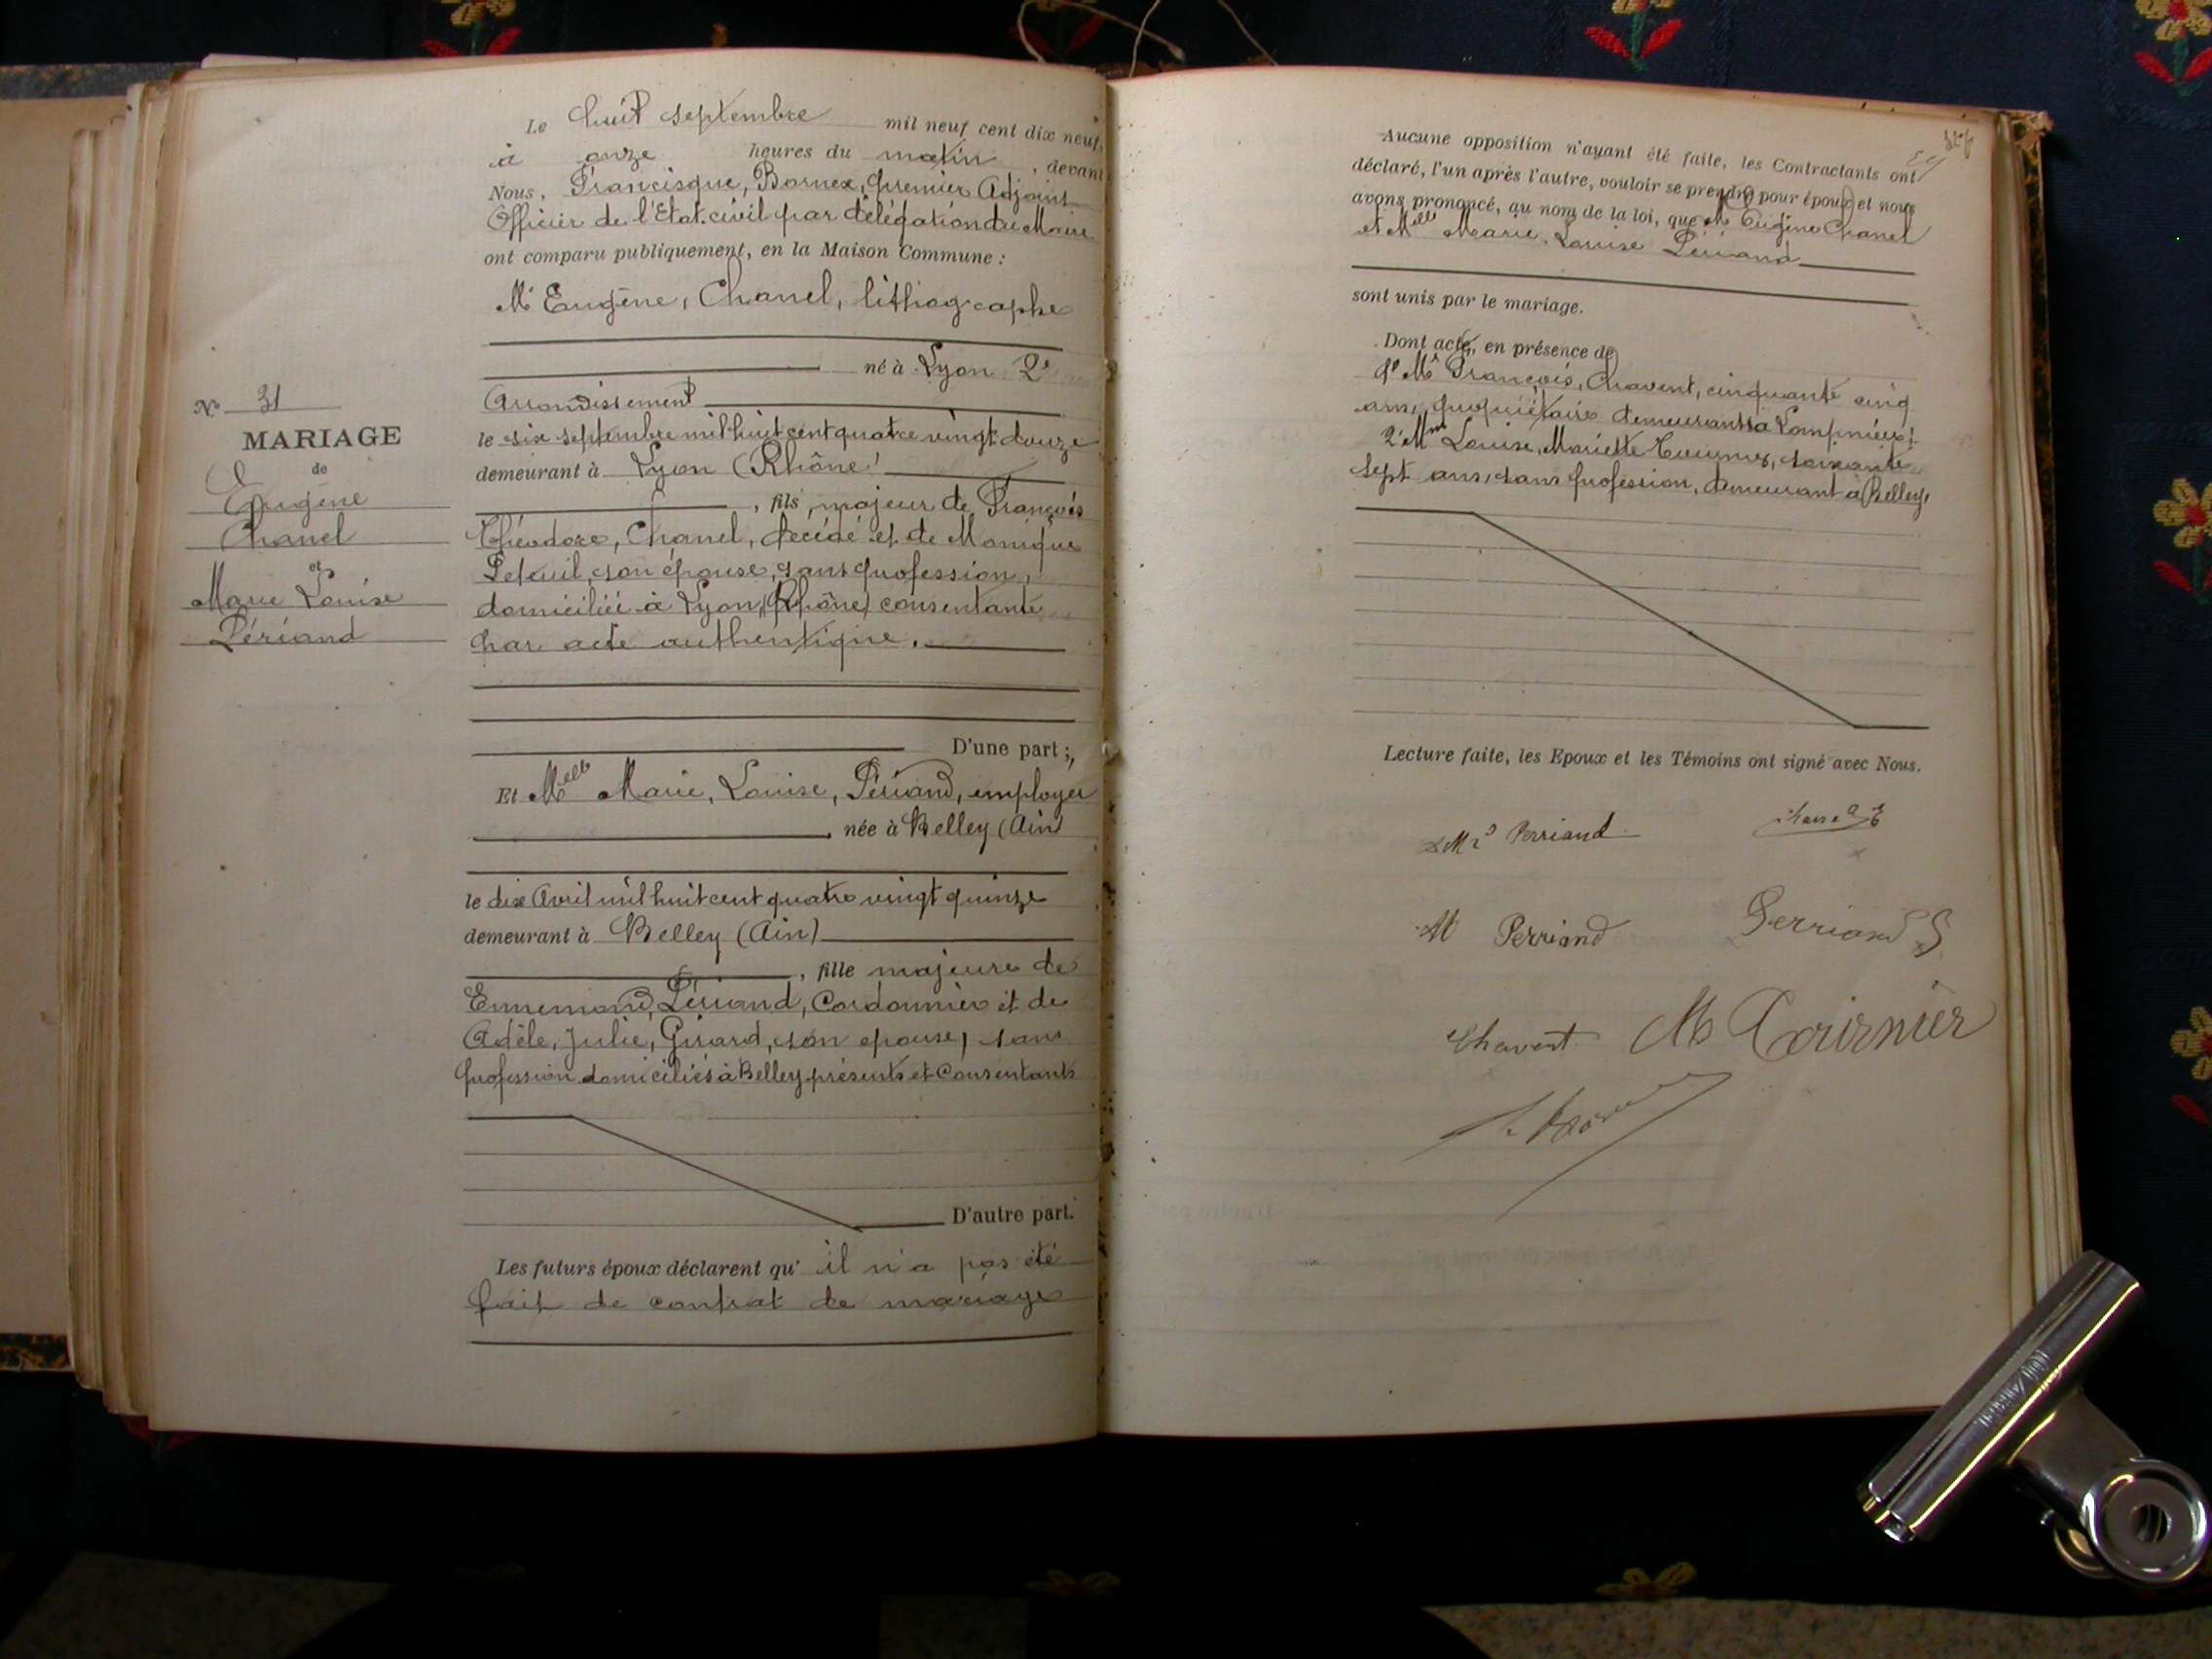 Le huit septembre mil neuf cent dix neuf,
à onze heures du matin, devant
Nous, Francisque, Bornex, premier Adjoint
Officier de l'Etat-civil par délégation du Maire
ont comparu publiquement, en la Maison Commune :
Mr Eugène, Chanel, lithographe
né à Lyon 2e
Arrondissement
le six septembre mil huit cent quatre vingt douze
demeurant à Lyon (Rhône)
, fils majeur de François
Théodore, Chanel, décédé et de Monique
son épouse, sans profession,
domiciliée à Lyon, (Rhône) consentante
par acte authentique.
D'une part ;
No 31
MARIAGE
de
Eugène
Chanel
et
Marie Louise
Périand
Et Melle Marie, Louise, Périand, employer
, née à Belley (Ain)
le dix Avril mil huit cent quatre vingt quinze
demeurant à Belley (Ain)
, fille majeure de
Ennemond, Périand, Cordonnier et de
Adèle, Julie, Girard, son epouse, sans
profession domiciliés à Belley présents et Consentants
D'autre part.
Les futurs époux déclarent qu' il n'a pas été
fait de contrat de mariage
Aucune opposition n'ayant été faite, les Contractants ont
déclaré, l'un après l'autre, vouloir se prendre pour époux et nous
avons prononcé, au nom de la loi, que Mr Eugène Chanel
et Melle Marie, Louise Périand
sont unis par le mariage.
Dont acte, en présence de
1e Mr François, Chavent, cinquante cinq
ans, propriétaire demeurant à
2e Mme Louise, Mariette Tournier, soixante
sept ans, sans profession, demeurant à Belley,
Lecture faite, les Epoux et les Témoins ont signé avec Nous.
Perriand Chanel E
M Perriand Perriand
Chavent M Tournier